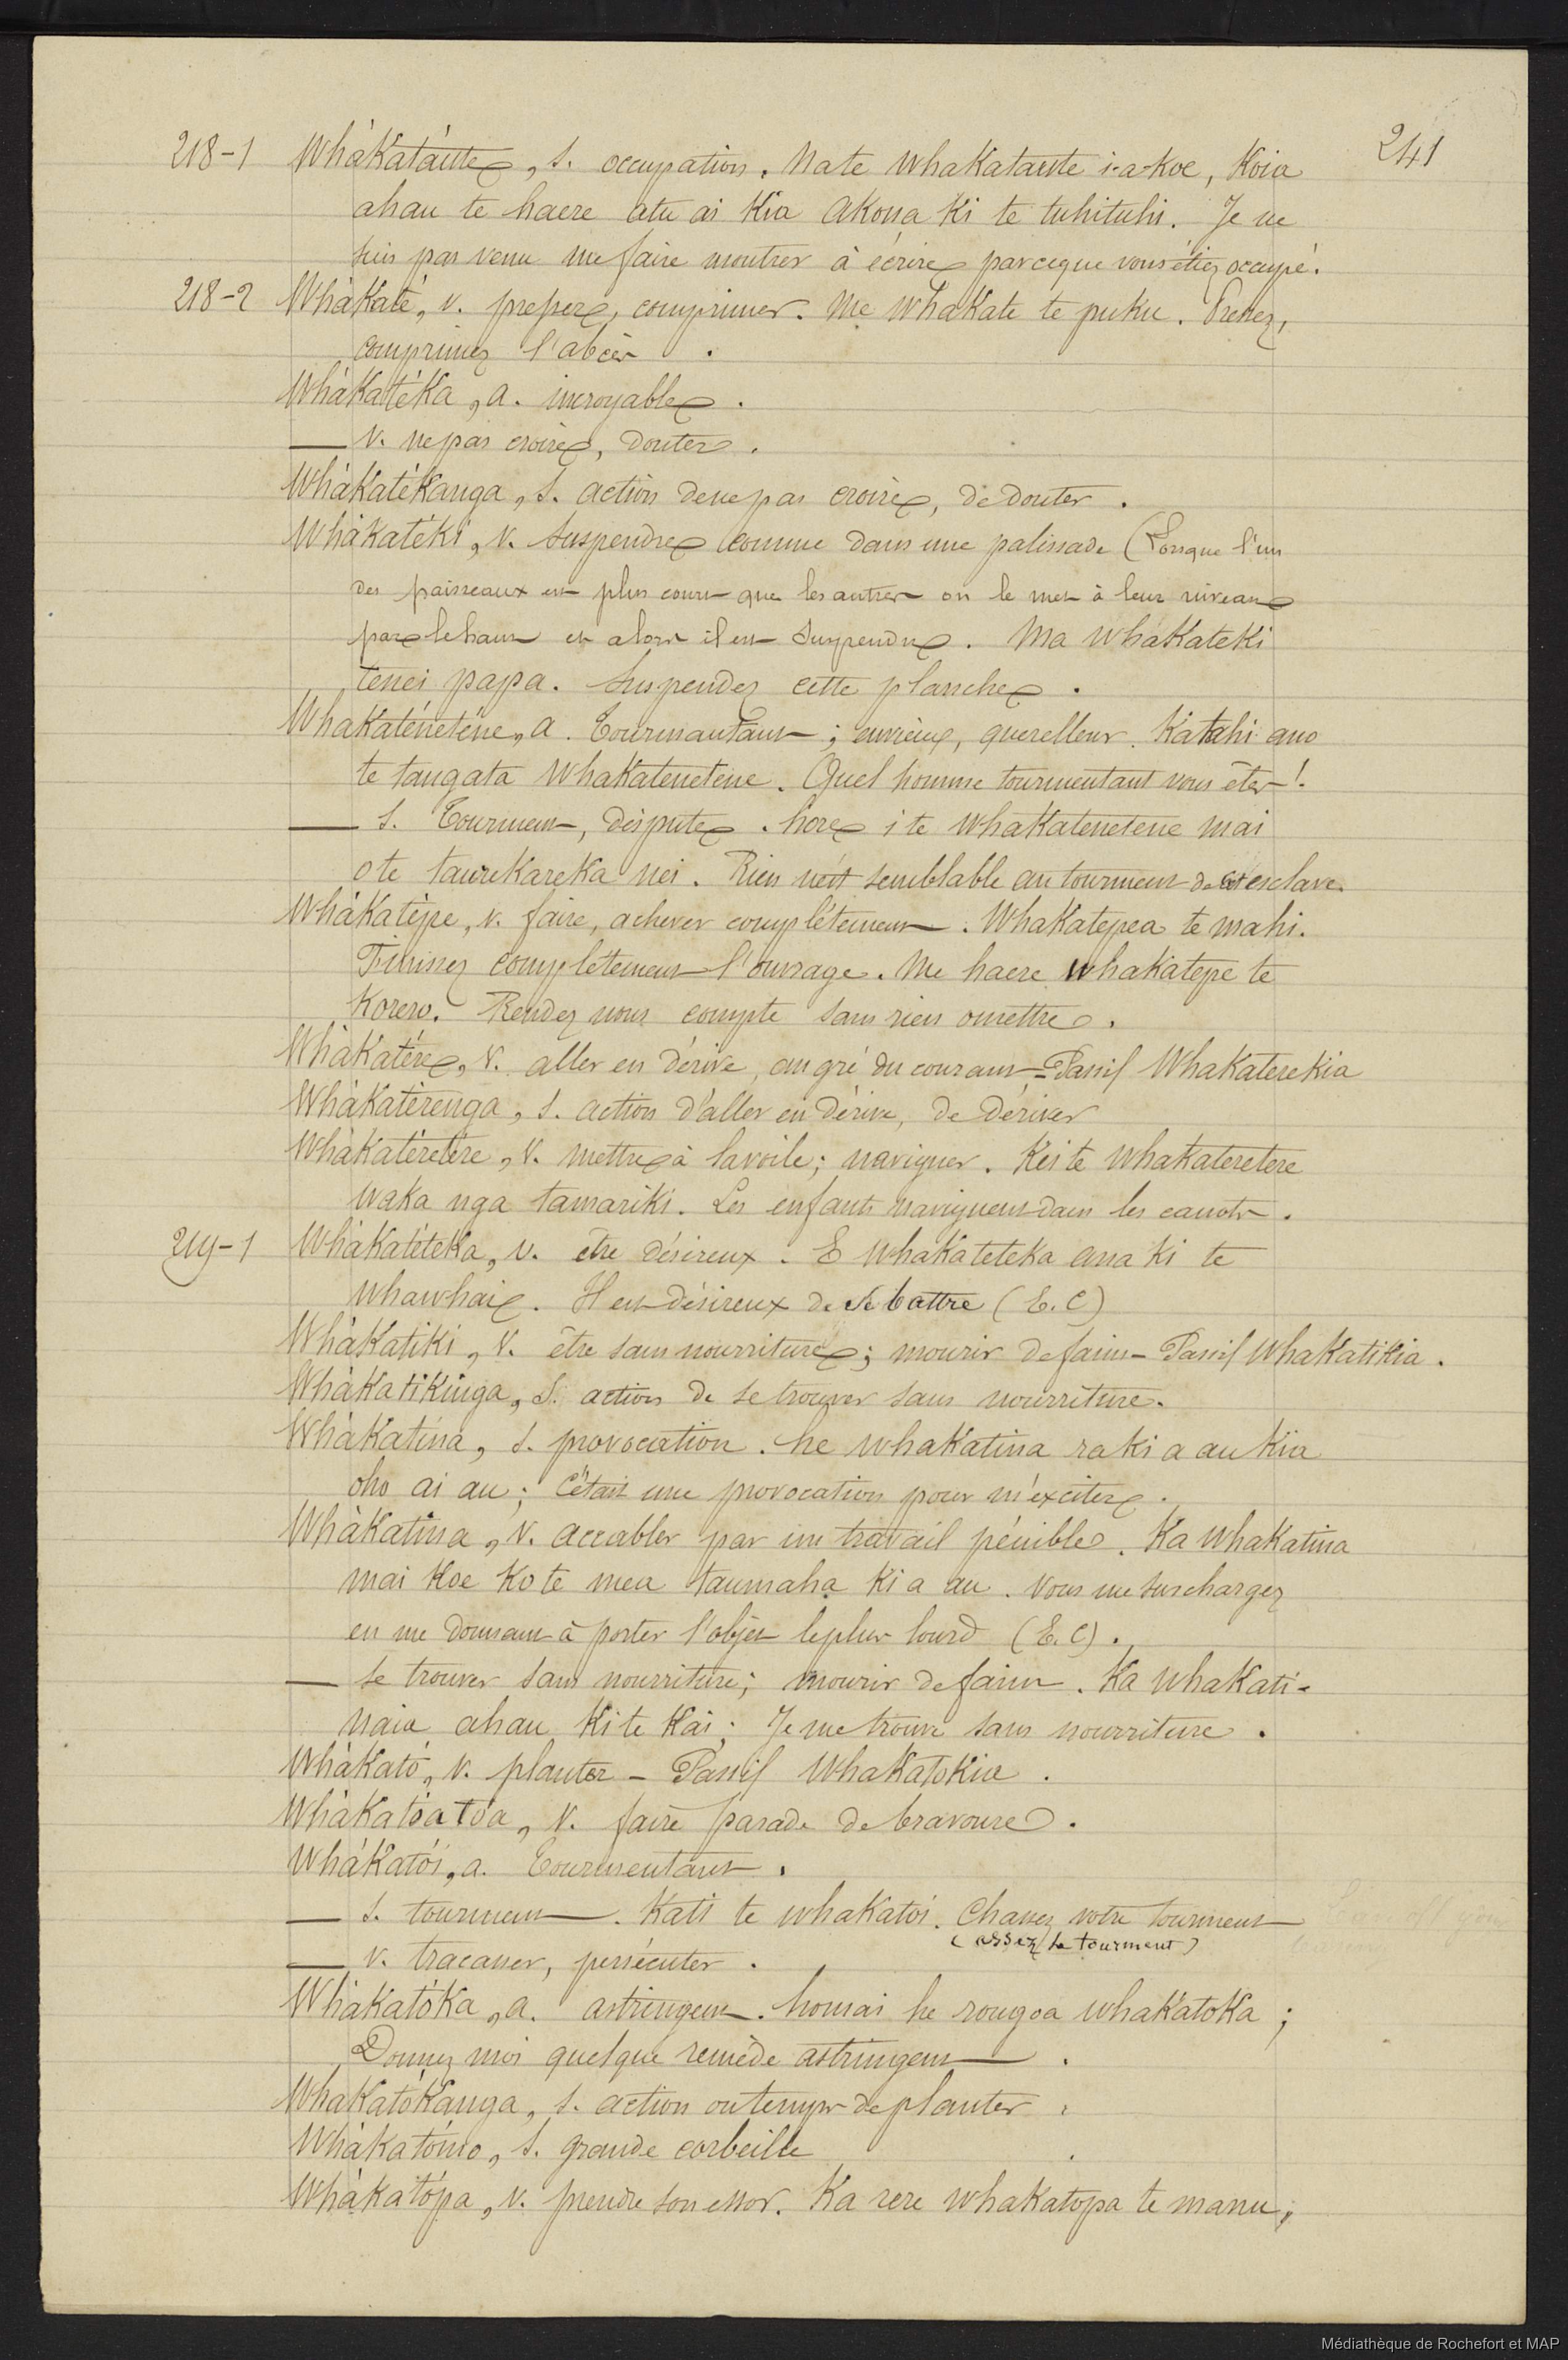 241
218-1 Whàkatáute, s. occupation. Na te whakataute i-a-koe, Koia
ahau te haere atu ai Kia akona Ki te tuhituhi. Je ne
suis pas venu me faire montrer à écrire parceque vous étiez occupé.
218-2 Whàkaté, v. presser, comprimer. Me whakate te puku. Pressez,
comprimez l'abcès.
Whàkatéka, a. incroyable.
— v. ne pas croire, douter.
Whàkatékanga, s. action de ne pas croire, de douter.
Whàkatéki, v. suspendre comme dans une palissade (Lorsque l'un
des paisseaux est plus court que les autres on le met à leur niveau
par le haut et alors il est suspendu. Ma whakateki
tenei papa. Suspendez cette planche.
Whakaténeténe, a. Tourmantant; envieux, querelleur. Katahi ano
te tangata whakatenetene. Quel homme tourmentant vous êtes!
— s. Tourment, dispute. hore i te whakatenetene mai
o te taurekareka nei. Rien n'est semblable au tourment de cet esclave.
Whàkatépe, v. faire, achever complétement. Whakatepea te mahi.
Finissez complétement l'ouvrage. Me haere whakatepe te
Korero. Rendez nous compte sans rien omettre.
Whàkatére, v. aller en dérive, au gré du courant - Passif Whakaterekia
Whàkatérenga, s. action d'aller en dérive, de dériver
Whàkatéretére, v. mettre à la voile; naviguer. Kei te whakateretere
waka nga tamariki. Les enfants naviguent dans les canots.
219-1 Whàkatéteka, v. être désireux. E whakateteka ana ki te
whawhai. Il est désireux de se battre (E. C)
Whàkatiki, v. être sans nourriture; mourir de faim - Passif whakatikia.
Whàkatikinga, s. action de se trouver sans nourriture.
Whàkatina, s. provocation. he whakatina ra ki a au kia
oho ai au; C'était une provocation pour m'exciter.
Whàkatina, v. accabler par un travail pénible. Ka whakatina
mai koe ko te mea taumaha ki a au. Vous me surchargez
en me donnant à porter l'objet le plus lourd (E. C).
— se trouver sans nourriture; mourir de faim. Ka whakati-
naia ahau ki te kai; Je me trouve sans nourriture.
Whàkató, v. planter - Passif Whakatokia.
Whàkatóatóa, v. faire parade de bravoure.
Whàkatói, a. Tourmentant.
— s. tourment. Kati te whakatoi. Chassez votre tourment
(assez le tourment)
— v. tracasser, persécuter.
Whàkatóka, a. astringent. homai he rongoa whakatoka;
Donnez moi quelque remède astringent.
Whakatókanga, s. action ou temps de planter.
Whàkatómo, s. grande corbeille
Whàkatópa, v. prendre son essor. Ka rere whakatopa te manu;
Médiathèque de Rochefort et MAP